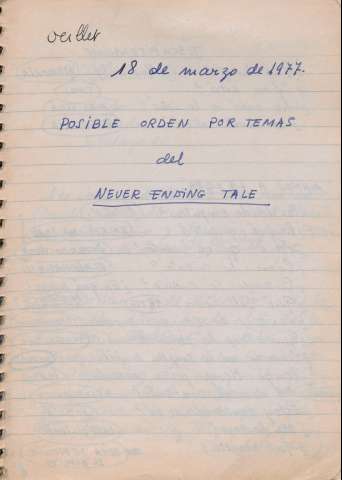 18 de marzo de 1977.
POSIBLE ORDEN POR TEMAS
del
NEVER ENDING TALE